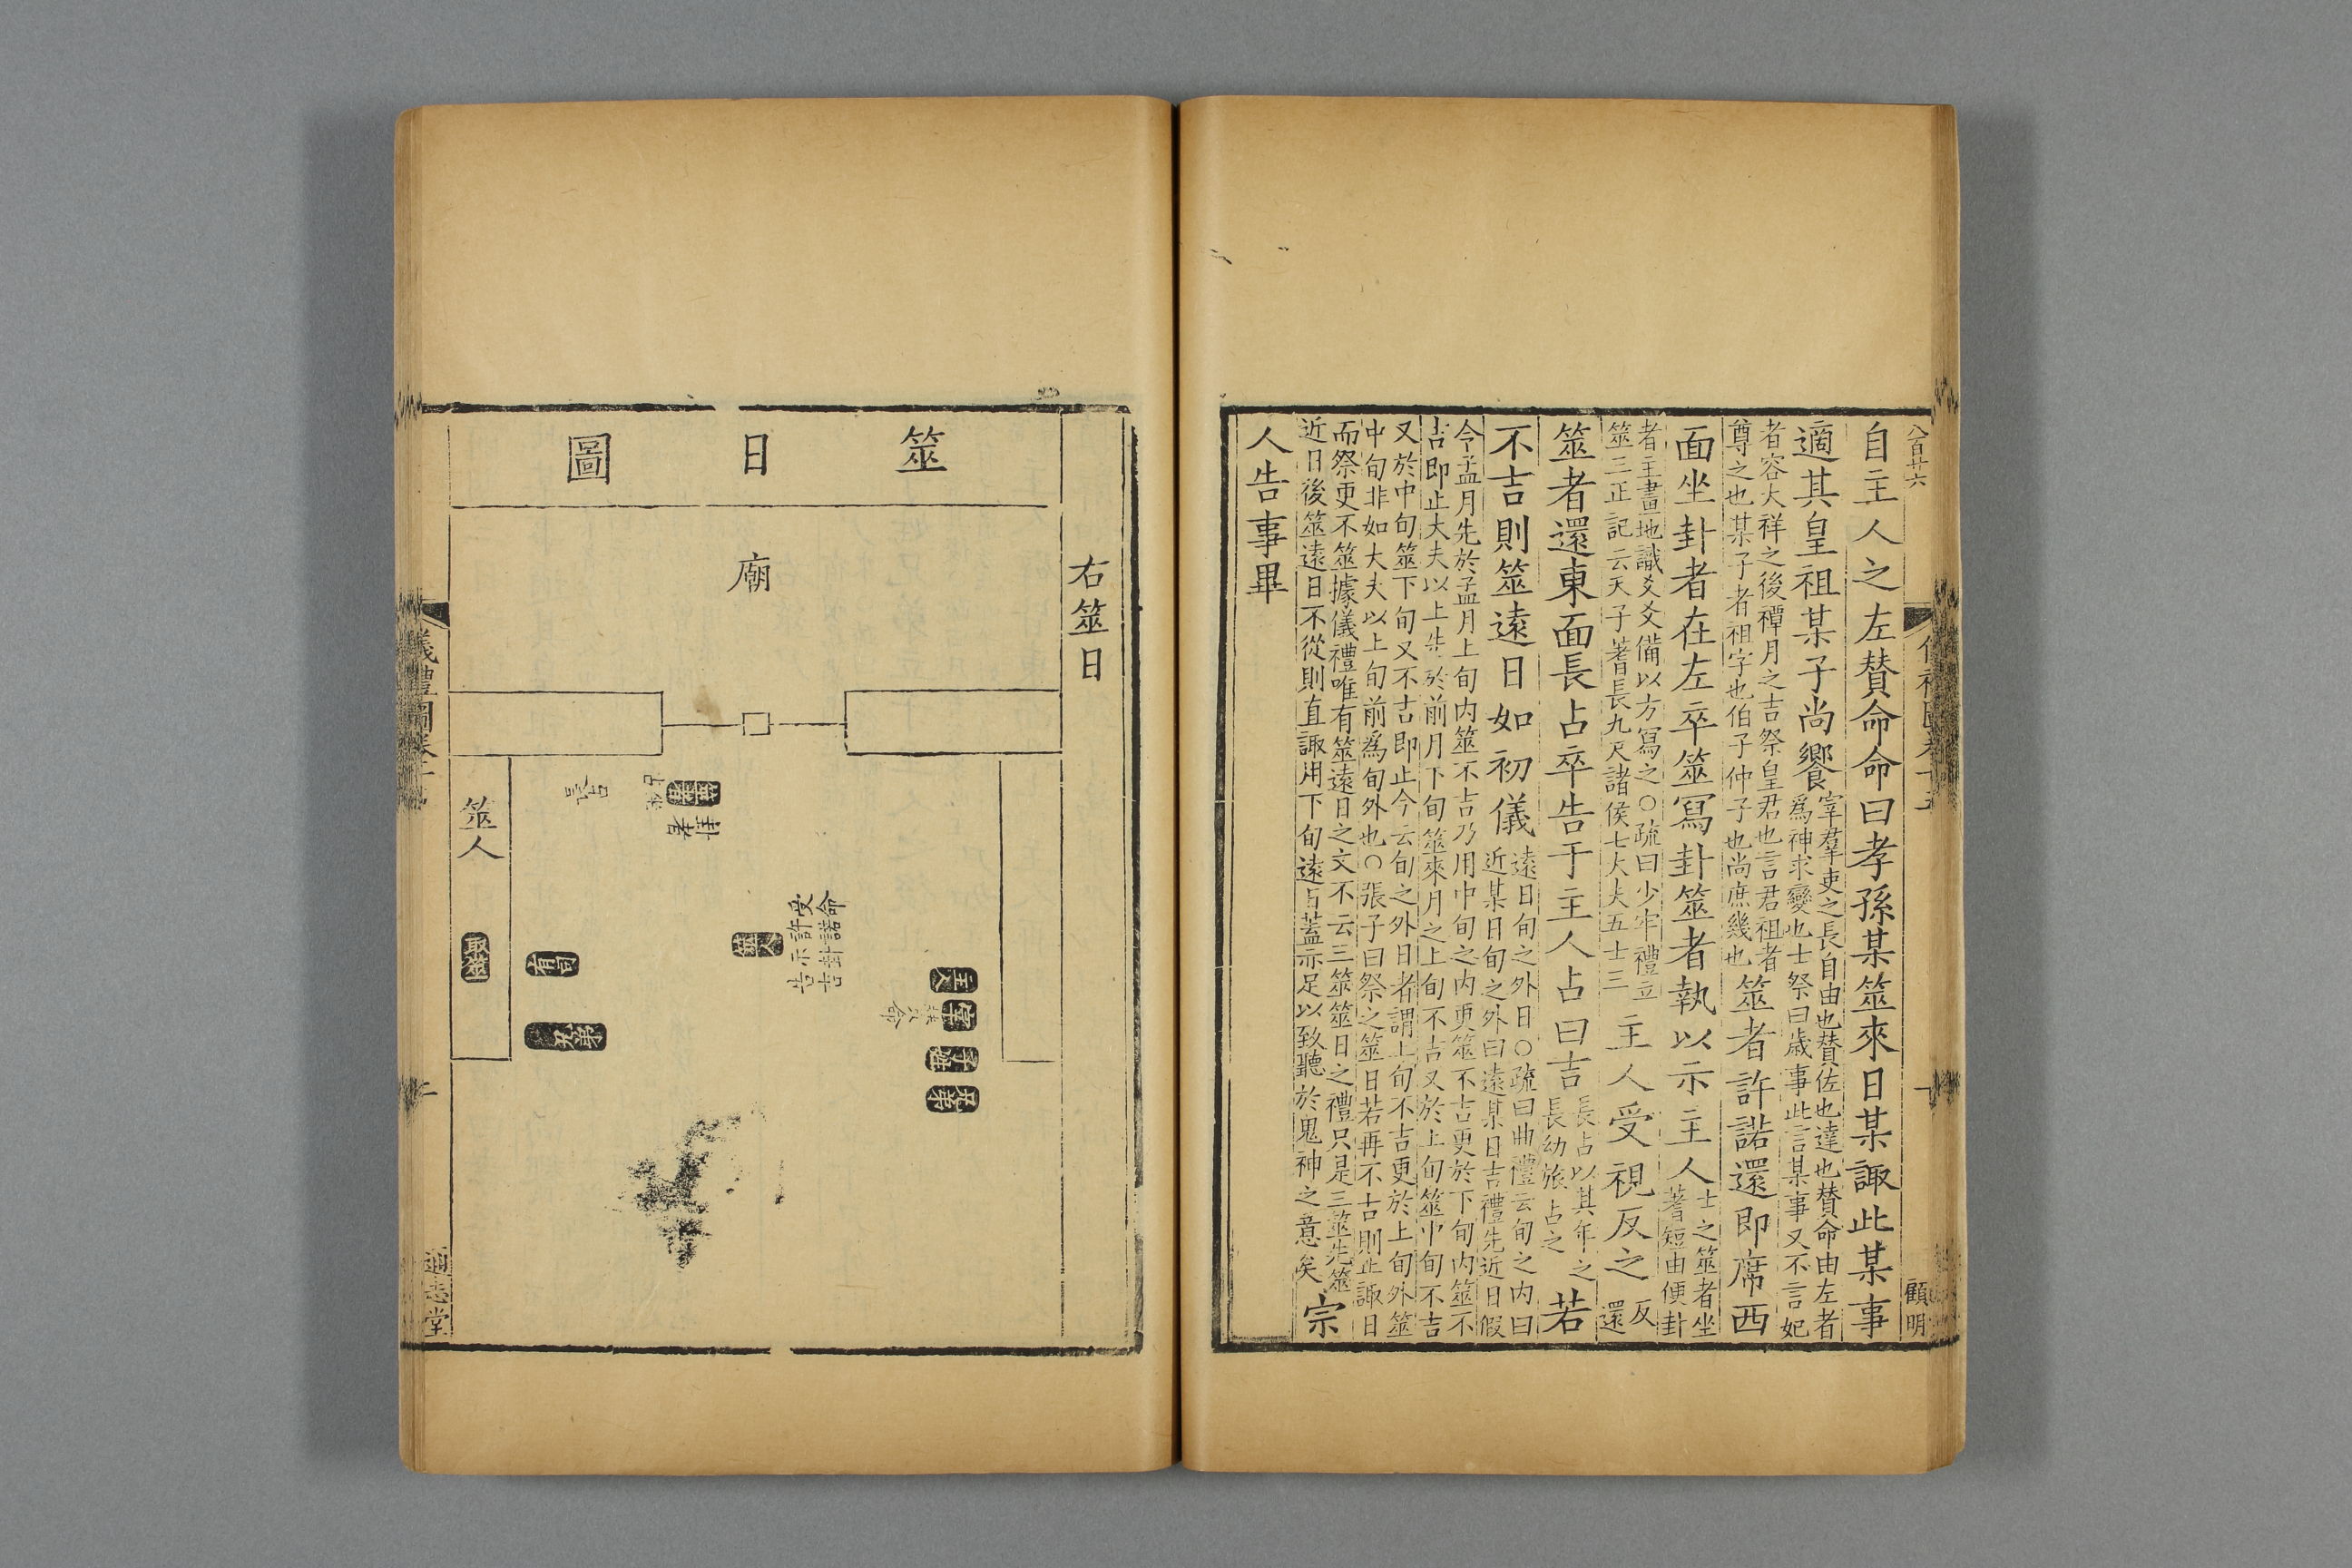 八百廿六
顧明
自主人之左贊命命曰孝孫某筮來日某諏此某事
適其皇祖某子尚饗
宰羣吏之長自由也贊佐也達也贊命由左者
爲神求變也士祭曰歲事此言某事又不言妃
者容大祥之後禫月之吉祭皇君也言君祖者
尊之也某子者祖字也伯子仲子也尚庶幾也
筮者許諾還即席西
面坐卦者在左卒筮寫卦筮者執以示主人
士之筮者坐
蓍短由便卦
者主畫地識爻爻備以方寫之○疏曰少牢禮立
筮三正記云天子蓍長九尺諸侯七大夫五士三
主人受視反之
反
還
筮者還東面長占卒告于主人占曰吉
長占以其年之
長幼旅占之
若
不吉則筮遠日如初儀
遠日旬之外日○疏曰曲禮云旬之内曰
近某日旬之外曰遠某日吉禮先近日假
令孟月先於孟月上旬内筮不吉乃用中旬之内更筮不吉更於下旬内筮不
吉即止大夫以上先於前月下旬筮來月之上旬不吉又於上旬筮中旬不吉
又於中旬筮下旬又不吉即止今云旬之外日者謂上旬不吉更於上旬外筮
中旬非如大夫以上旬前爲旬外也○張子曰祭之筮日若再不吉則止諏日
而祭更不筮據儀禮唯有筮遠日之文不云三筮筮日之禮只是三筮先筮
近日後筮遠日不從則直諏用下旬遠日蓋示足以致聽於鬼神之意矣
宗
人告事畢
右筮日
筮日圖
廟
筮者
卦者
占
筮人
受命
許諾
示卦
告吉
主人
宰
命
子姓
兄弟
有司
兄弟
筮人
取筮
儀禮圖卷十五
通志堂